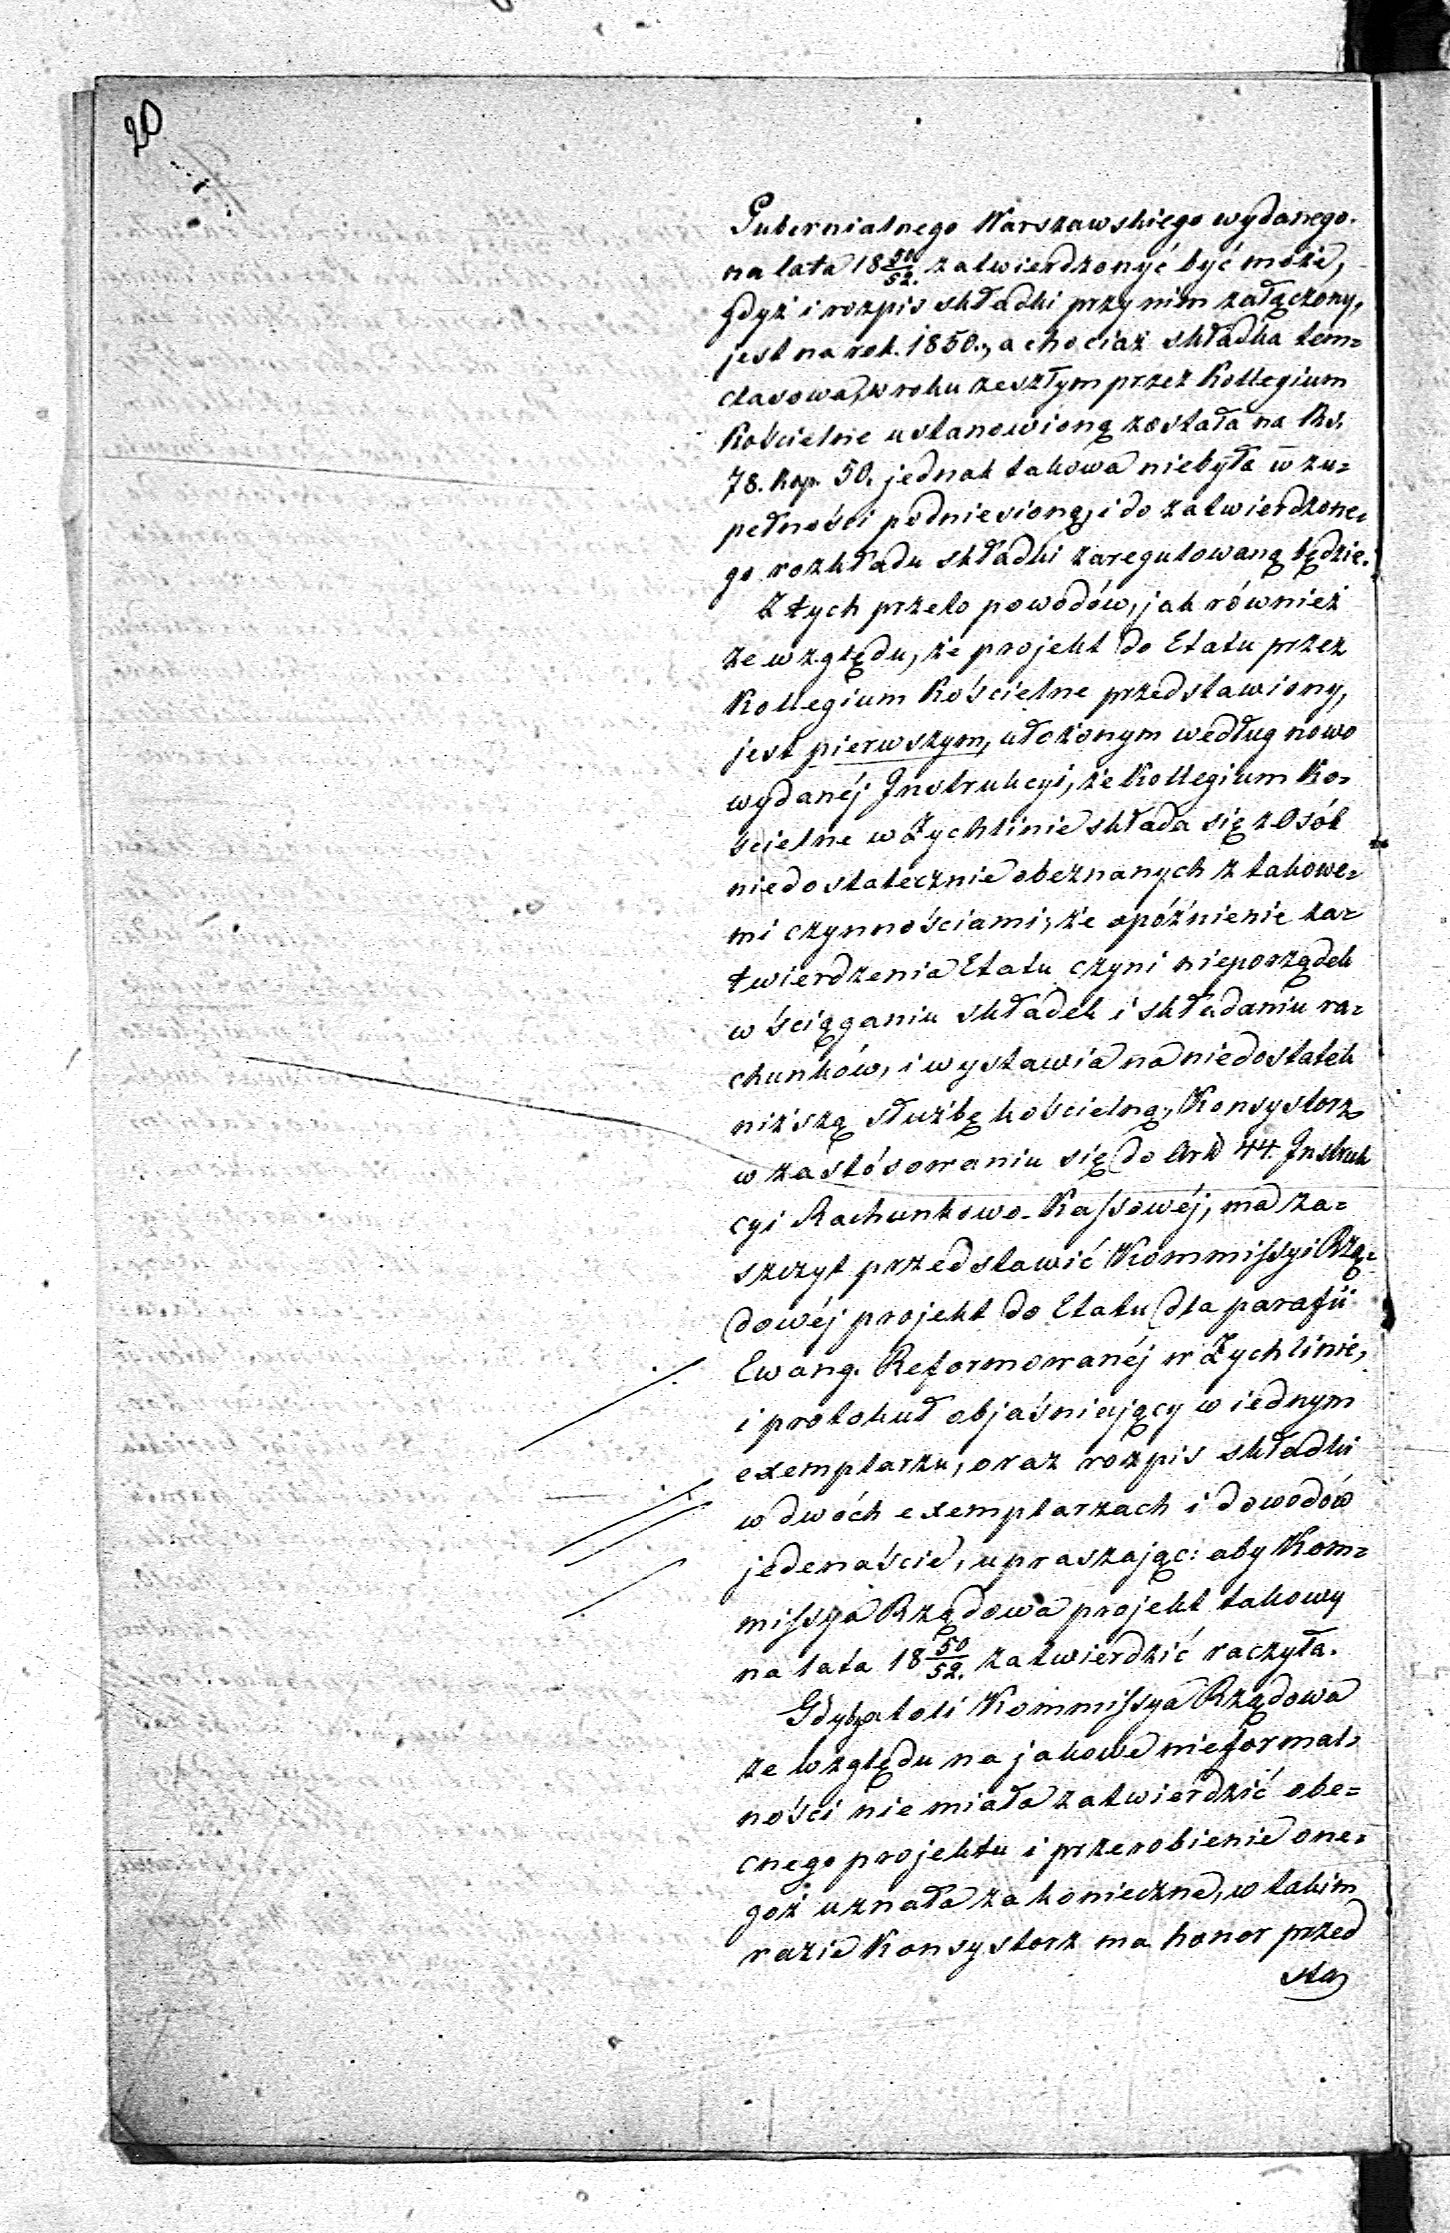 20
Gubernialnego Warszawskiego wydanego
na lata 18 50/52. zatwierdzonyć być może,
gdyż i rozpis składki przy nim załączony,
jest na rok. 1850., a chociaż składka tem=
czasowa, w roku zeszłym przez Kollegium
Kościelne ustanowioną została na Rs.
78. kop. 50. jednak takowa niebyła w zu=
pełności podniesioną, i do zatwierdzone=
go rozkładu składki zaregulowaną będzie.
Z tych przeto powodów, jak również
ze względu, że projekt do Etatu przez
Kollegium Kościelne przedstawiony,
jest pierwszym, ułożonym według nowo
wydanéj Instrukcyi, że Kollegium Ko=
ścielne w Żychlinie składa się z Osób
niedostatecznie obeznanych z takowe=
mi czynnościami, że opóźnienie za=
twierdzenia Etatu czyni nieporządek
w ściąganiu składek i składaniu ra=
chunków, i wystawia na niedostatek
niższą służbę kościelną, Konsystorz
w zastósowaniu się do Art 44. Instruk
cyi Rachunkowo-Kassowéj, ma za=
szczyt przedstawić Kommissyi Rzą=
dowéj projekt do Etatu dla parafii
Ewang. Reformowanéj w Żychlinie,
i protokuł objaśniający w iednym
exemplarzu, oraz rozpis składki
w dwóch exemplarzach i dowodów
jedenaście, upraszając: aby Kom=
missya Rządowa projekt takowy
na lata 18 50/52. zatwierdzić raczyła.
Gdyby atoli Kommissya Rządowa
ze względu na jakowe nieformal=
ności nie miała zatwierdzić obe=
cnego projektu i przerobienie one=
goż uznała za konieczne, w takim
razie Konsystorz ma honor przed
sta